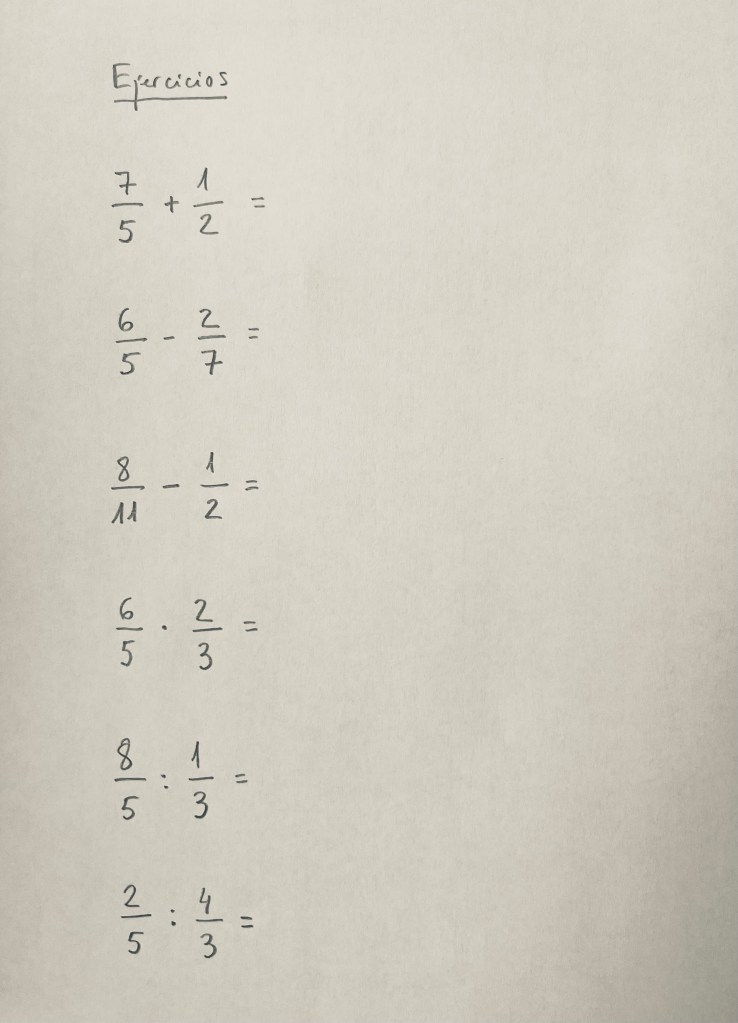 Ejercicios
7/5 + 1/2 =
6/5 - 2/7 =
8/11 - 1/2 =
6/5 · 2/3 =
8/5 : 1/3 =
2/5 : 4/3 =